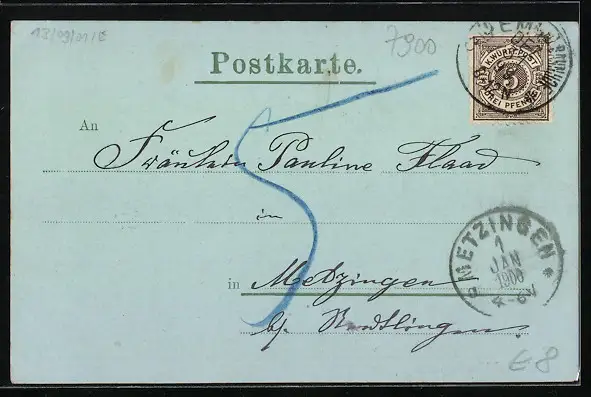 13/09/01/E
7900
Postkarte.
K. WÜRTT. POST
3
DREI PFENNIG
An
Fräulein Pauline Flaad
in
in Metzingen
b/. Reutlingen
5
METZINGEN
1
JAN
1900
4-6N
€8